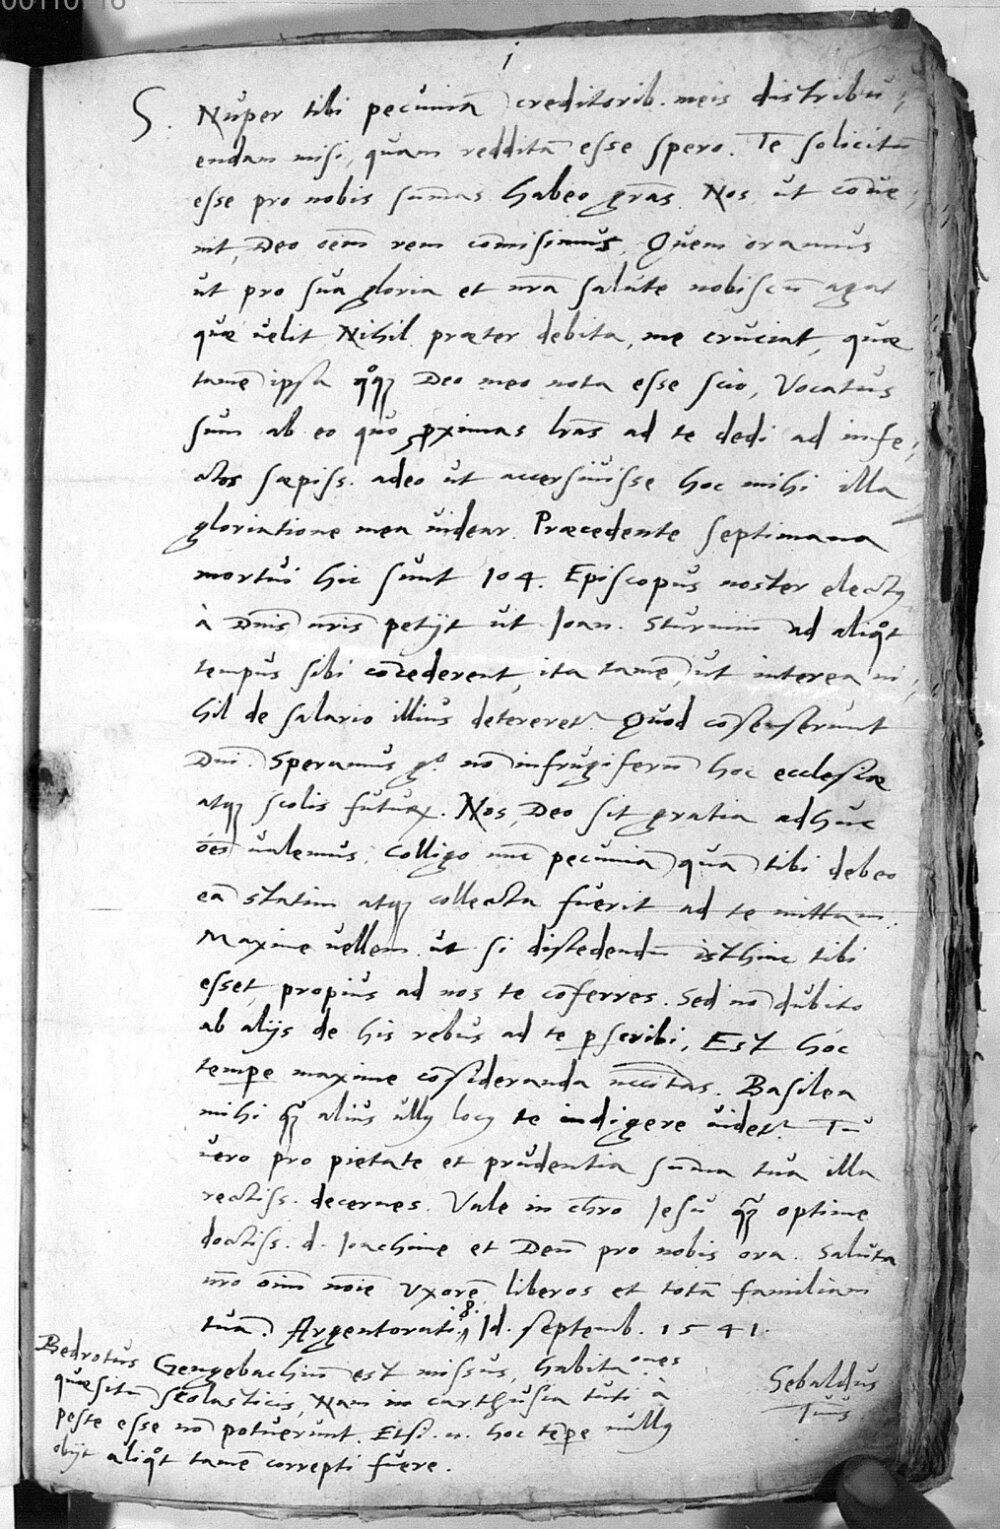 00110716
i
S. Nuper tibi pecuniā creditorib. meis distribu,
endam misi, quam redditā esse spero. Te solicitū
esse pro nobis sum̄as habeo grās. Nos, ut cōue,
nit, Deo oem̄ rem com̄isimus, Quem oramus
ut pro sua gloria et nrā salute nobiscū agat
quæ uelit. Nihil præter debita, me cruciat, quæ
tamē ipsa qq̃ Deo meo nota esse scio, Vocatus
sum ab eo quo ꝓximas lrās ad te dedi ad infe,
ctos sæpiss. adeo ut accersiuisse hoc mihi illa
gloriatione mea uidear. Præcedente septimana
mortui hic sunt 104. Episcopus noster electꝰ
à Dnis̄ nris̄ petijt ut Joan. Sturmiū ad aliqͦt
tempus sibi cōcederent, ita tamē, ut interea ni,
hil de salario illius detereret᷑. Quod cōsenserunt
Dni. Speramus gͦ nō infrugiferū hoc ecclesiæ
atqꝫ scolis futuꝝ. Nos, Deo sit gratia adhuc
oēs ualemus, Colligo nūc pecuniā quā tibi debeo
eā statim atqꝫ collecta fuerit ad te mittam.
Maxime uellem ut si discedendū isthinc tibi
esset, propius ad nos te cōferres. Sed nō dubito
ab alijs de his rebus ad te ꝑscribi, Est hoc
tempe maxime cōsideranda nccitas̄. Basilea
mihi qꝫ alius ullꝰ locꝰ te indigere uidet᷑. Tu
uero pro pietate et prudentia sum̄a tua illa
rectiss. decernes. Vale in chrō Jesu qꝫ optime
doctiss. d. Joachime et Deū pro nobis ora. Saluta
nrō oīm noīe uxorē liberos et totā familiam
tuā. Argentorati. 8. Id. septemb. 1541.
Sebaldus
Tuus
Bedrotus Gengebachiū est missus, habitaones
quæsitū scolasticis, Nam in carthusia tuti à
peste esse nō potuerunt. Etsi .n. hoc tēpe nullꝰ
obijt aliqͦt tamē correpti fuere.